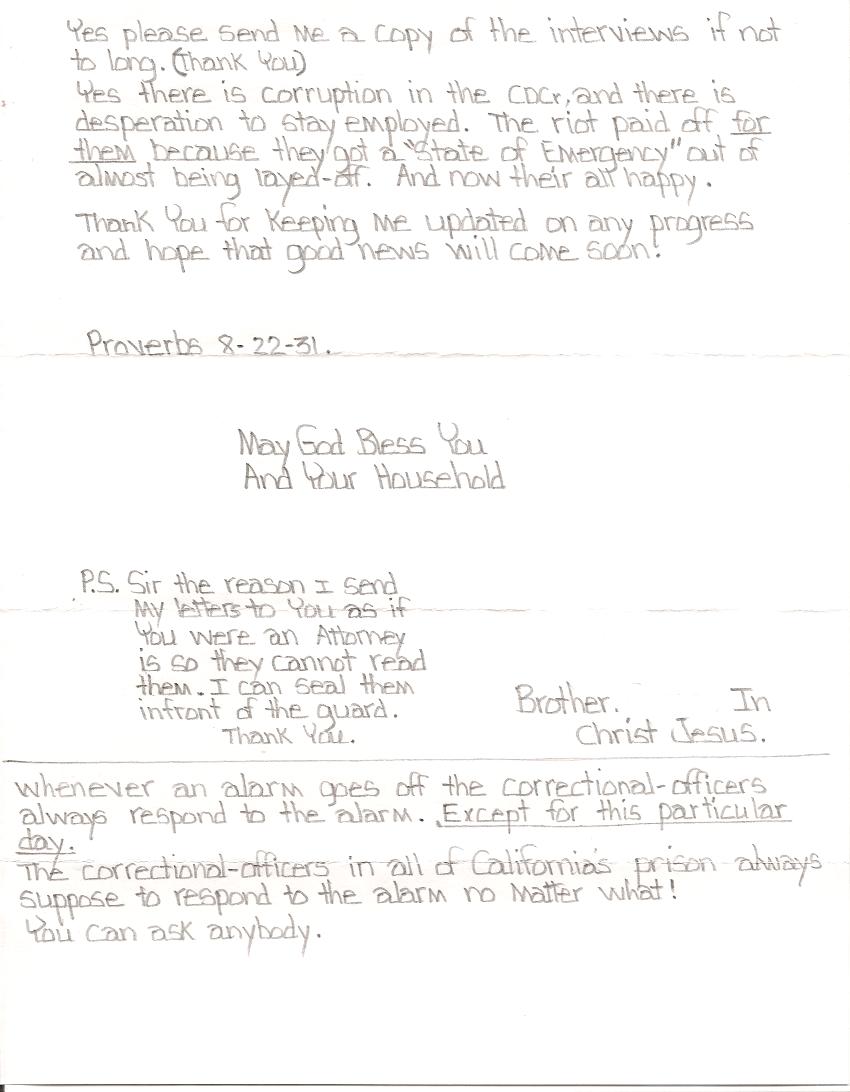 Yes please send Me a copy of the interviews if not
to long. (Thank You)
Yes there is corruption in the CDCr, and there is
desperation to stay employed. The riot paid off for
them because they got a "State of Emergency" out of
almost being layed-off. And now their all happy.
Thank You for Keeping Me updated on any progress
and hope that good news will come soon!
Proverbs 8-22-31.
May God Bless You
And Your Household
P.S. Sir the reason I send
My letters to You as if
You were an Attorney
is so they cannot read
them. I can seal them
infront of the guard.
Thank You.
Brother. In
Christ Jesus.
whenever an alarm goes off the correctional-officers
always respond to the alarm. Except for this particular
day.
The correctional-officers in all of California's prison always
suppose to respond to the alarm no Matter what!
You can ask anybody.